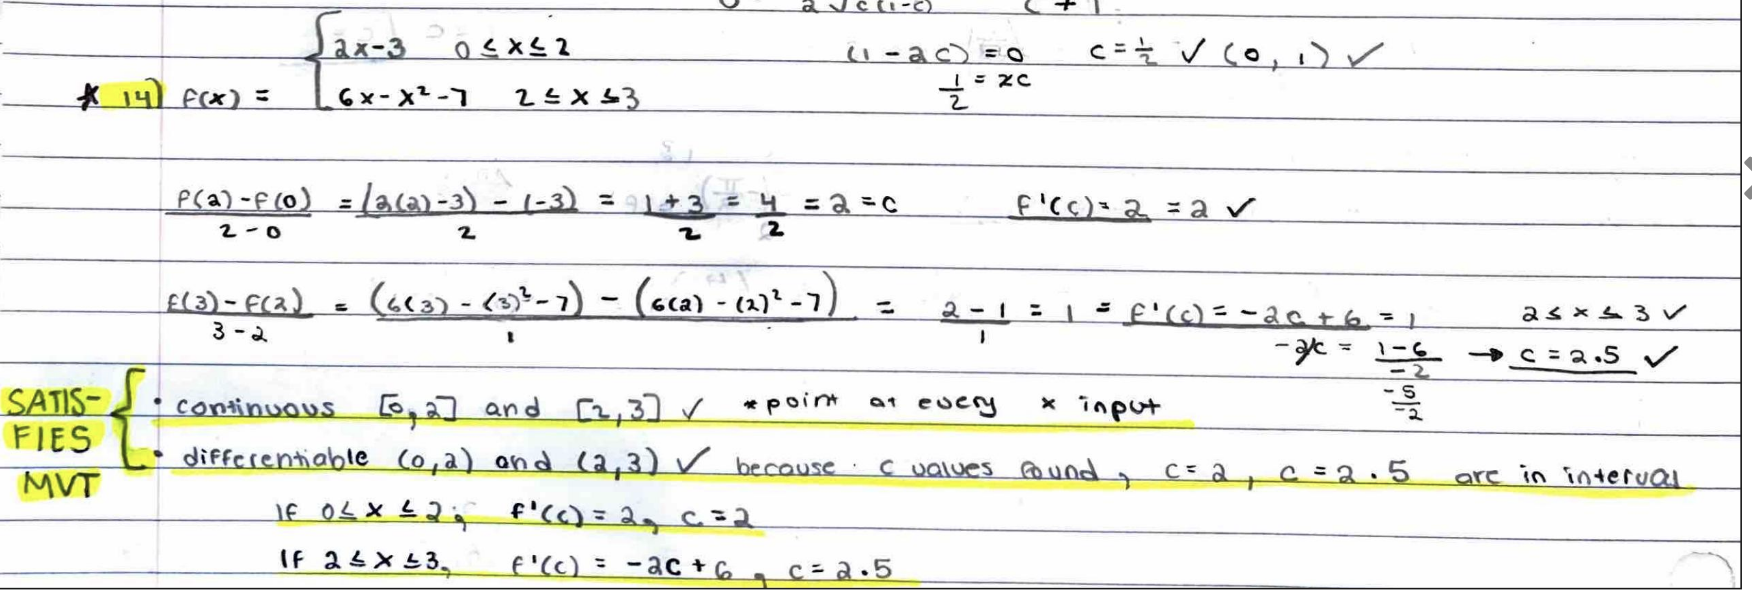 2√c(1-c) c + 1
{ 2x-3 0 ≤ x ≤ 2 (1 - 2c) = 0 c = 1/2 ✓ (0, 1) ✓
* 14) f(x) = { 6x - x² - 7 2 ≤ x ≤ 3 1/2 = 2c
f(2) - f(0) / 2 - 0 = (2(2) - 3) - (-3) / 2 = 1 + 3 / 2 = 4 / 2 = 2 = c f'(c) = 2 = 2 ✓
f(3) - f(2) / 3 - 2 = (6(3) - (3)² - 7) - (6(2) - (2)² - 7) / 1 = 2 - 1 / 1 = 1 = f'(c) = -2c + 6 = 1 2 ≤ x ≤ 3 ✓
-2c = 1 - 6 / -2 → c = 2.5 ✓
-5 / -2
SATIS- { • continuous [0, 2] and [2, 3] ✓ * point at every x input
FIES
• differentiable (0, 2) and (2, 3) ✓ because c values found, c = 2, c = 2.5 are in interval
MVT
If 0 ≤ x ≤ 2, f'(c) = 2, c = 2
If 2 ≤ x ≤ 3, f'(c) = -2c + 6, c = 2.5